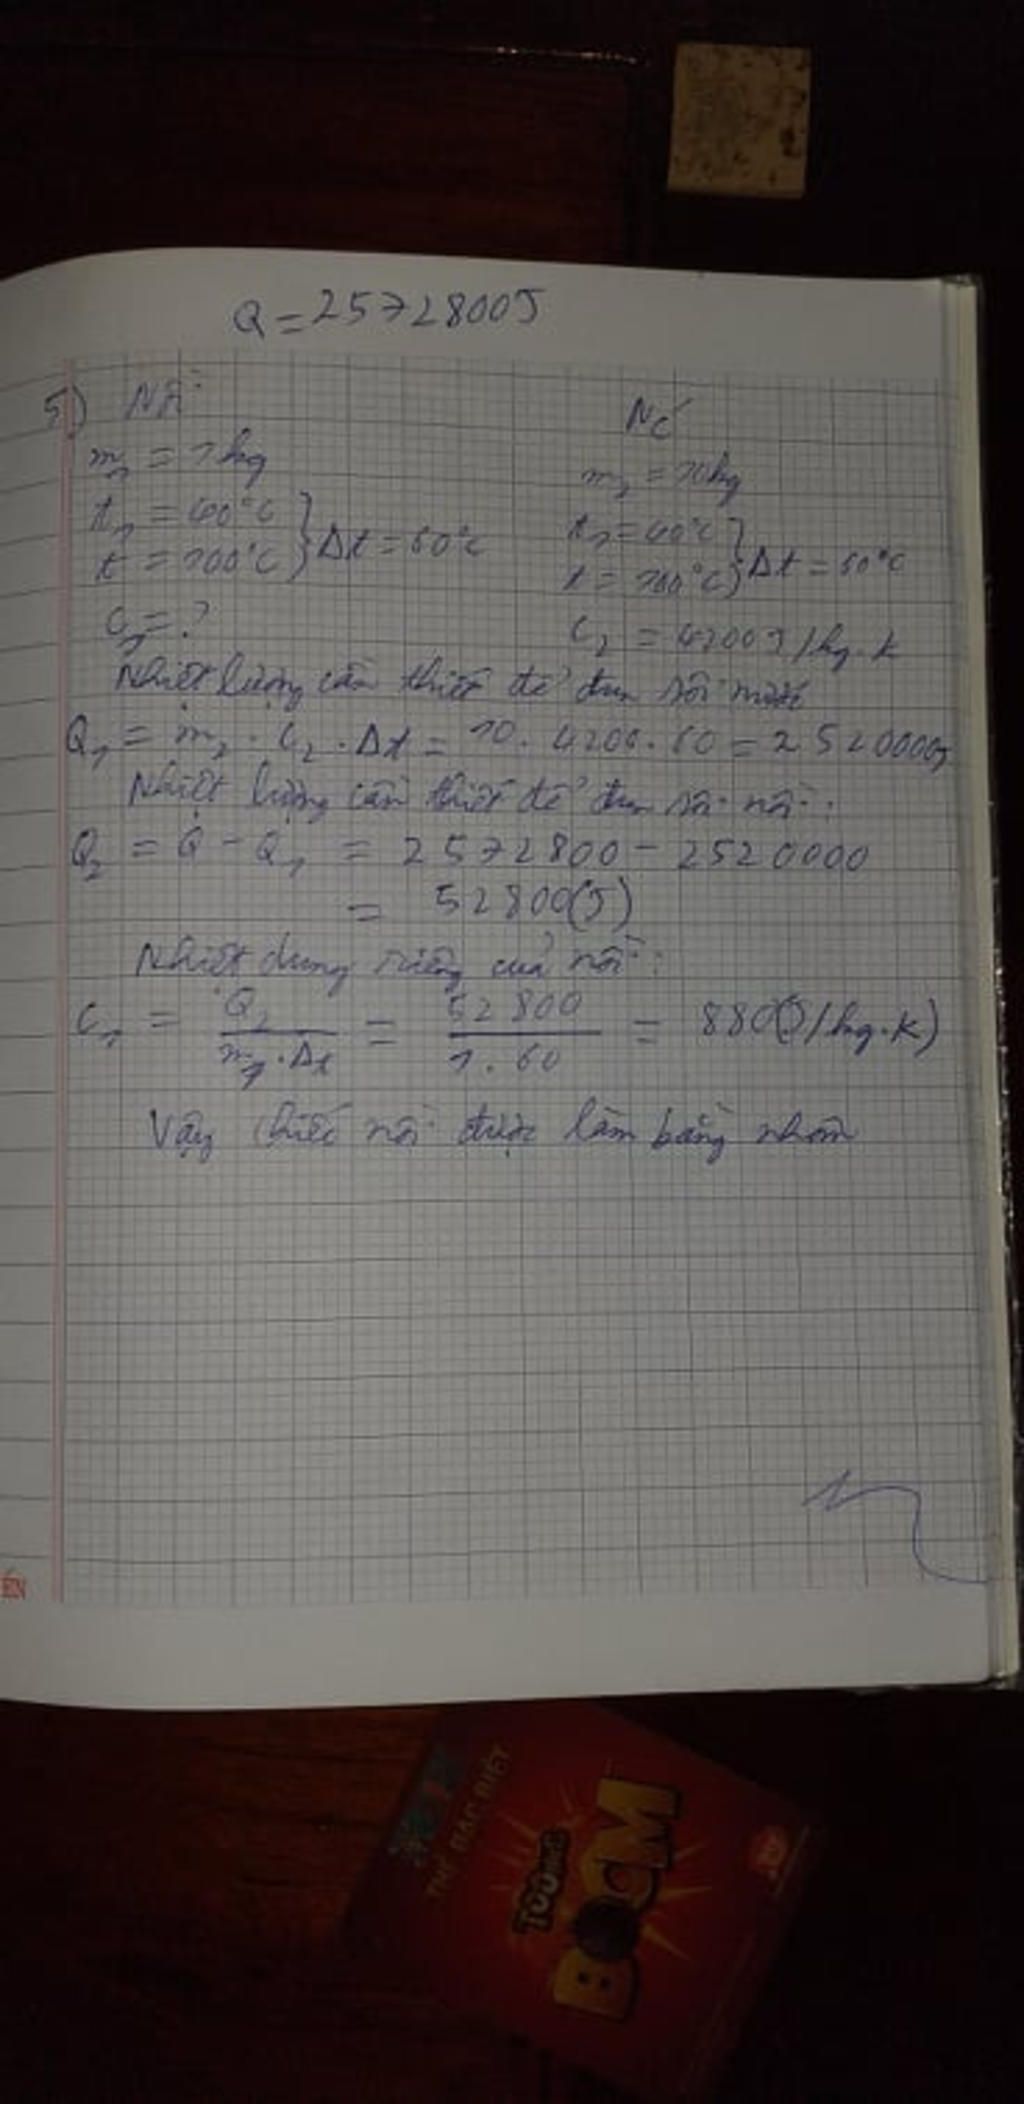 Q = 2572800J
5) Nồi
Nc
m₁ = 1kg
m₂ = 10kg
t₁ = 40°C
t = 100°C } Δt = 60°C
t₁ = 40°C
t = 100°C } Δt = 60°C
c₁ = ?
c₂ = 4200J/kg.K
Nhiệt lượng cần thiết để đun sôi nước
Q₁ = m₂ . c₂ . Δt = 10. 4200. 60 = 2520000J
Nhiệt lượng cần thiết để đun sôi nồi:
Q₂ = Q - Q₁ = 2572800 - 2520000
= 52800(J)
Nhiệt dung riêng của nồi:
c₁ = Q₂ / m₁.Δt = 52800 / 1.60 = 880(J/kg.K)
Vậy chiếc nồi được làm bằng nhôm
ÊN
THẺ ĐẶC BIỆT
TOONG
BOOM